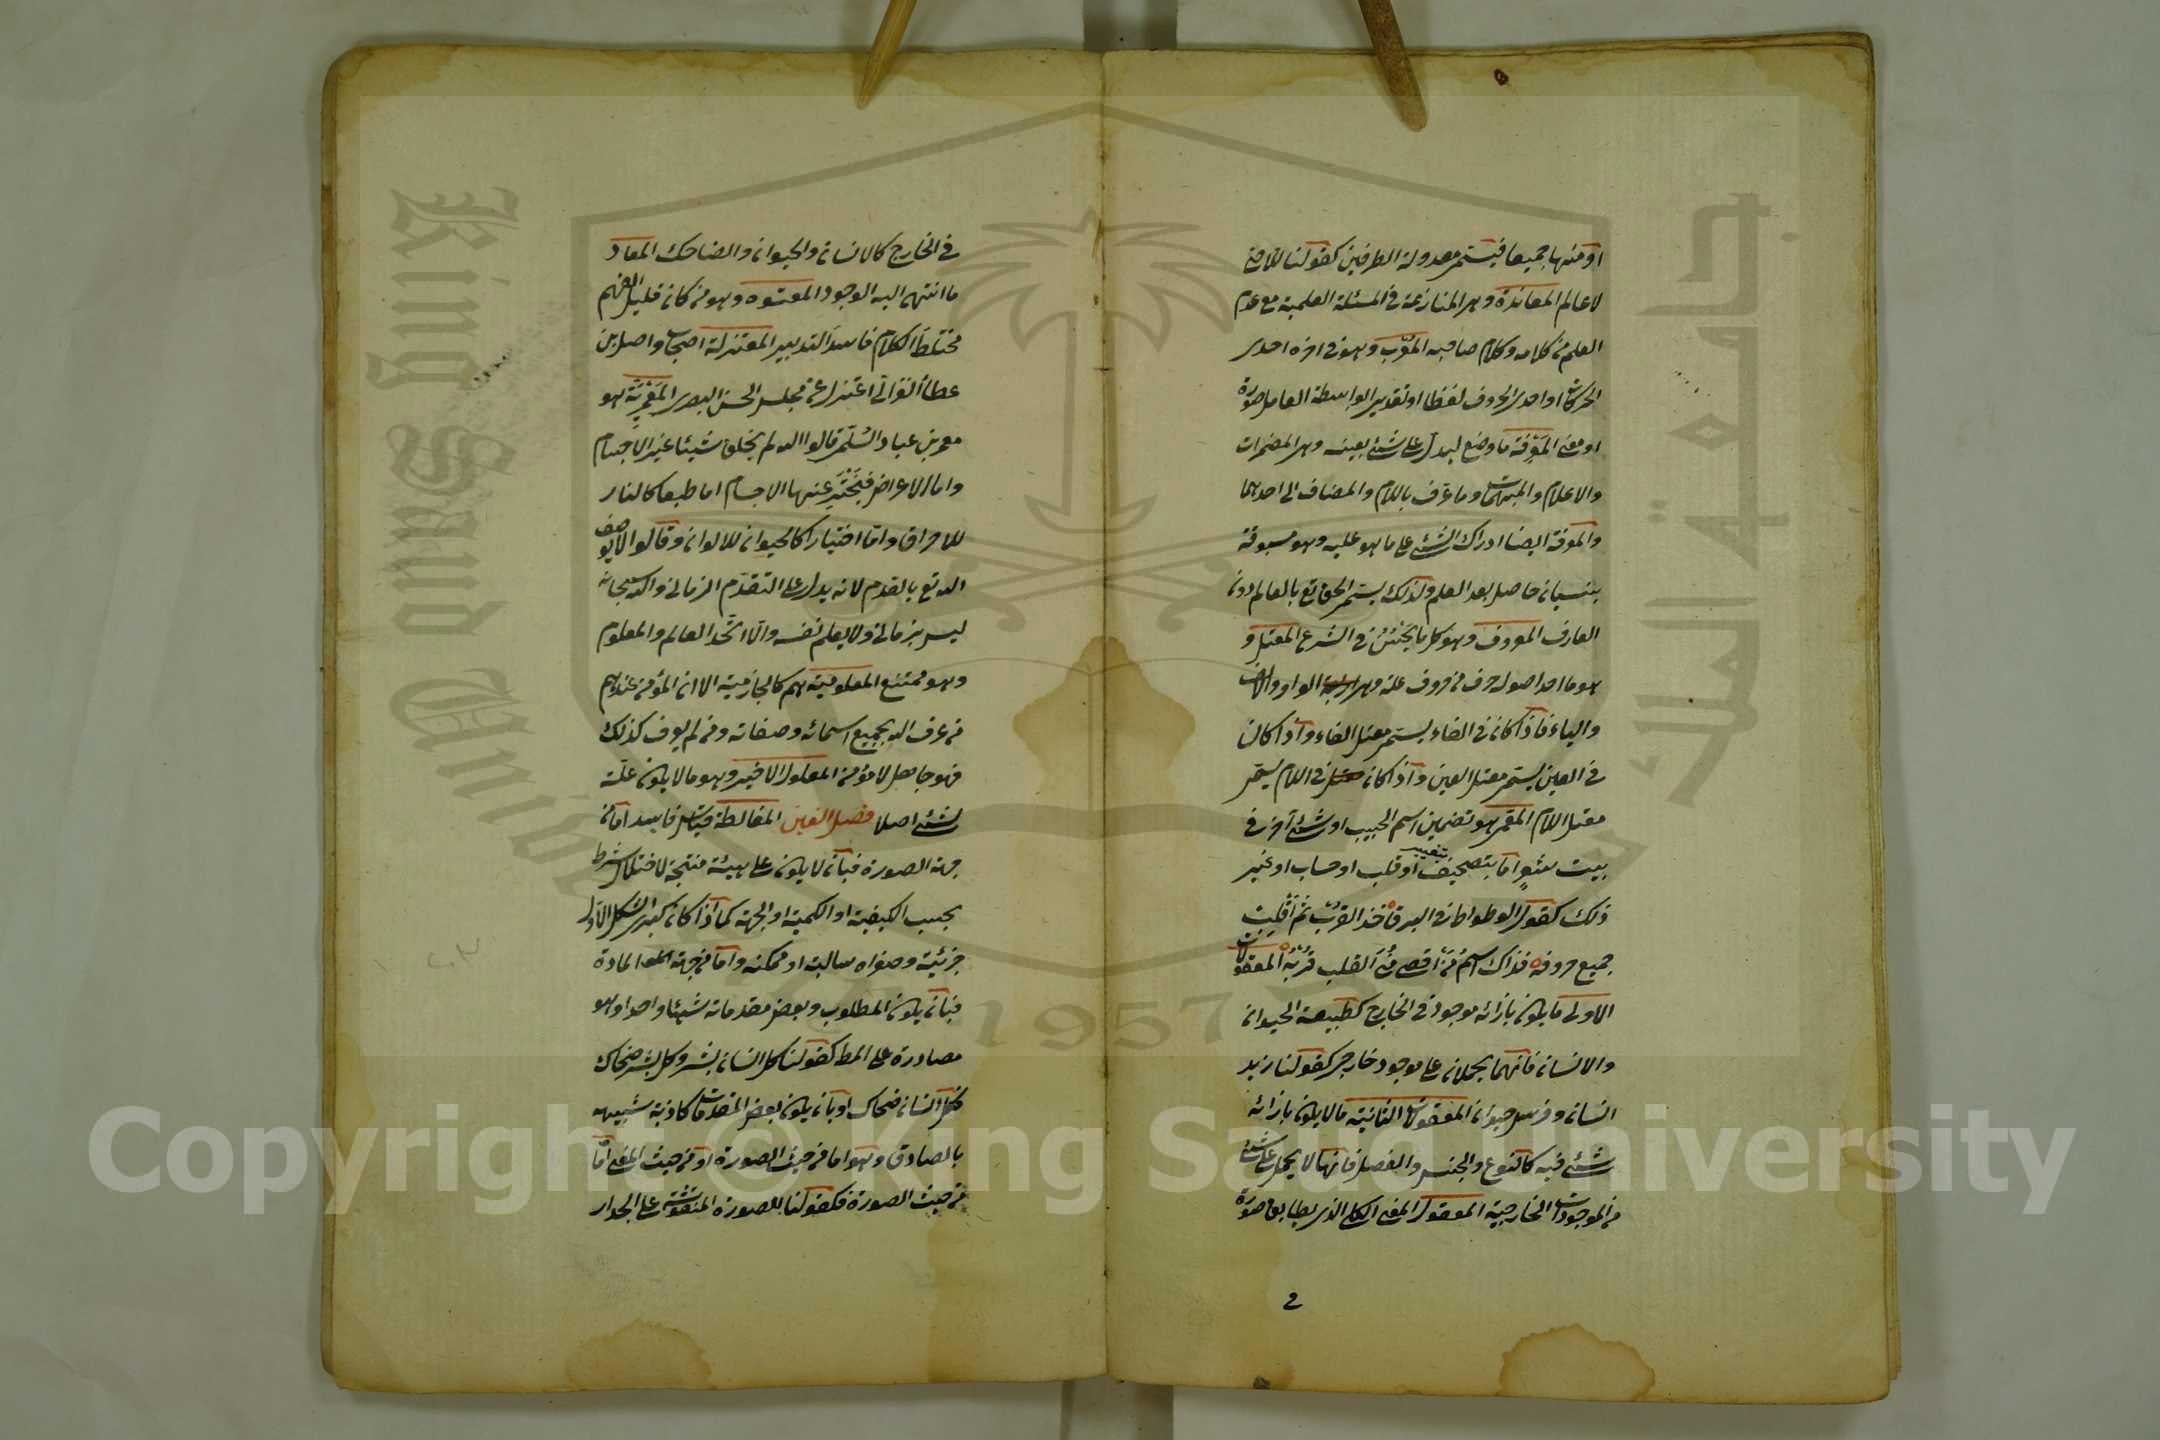 او منهما جميعا فيستمر معدولة الطرفين كقولنا اللاحي
لا عالم المعاندة وهي المنازعة في المسئلة العلمية مع عدم
العلم من كلامه وكلام صاحبه المعرب وهو في اخره احدى
الحركات او احدى الحروف لفظا او تقديرا بواسطة العامل صورة
او معنى المعرفة ما وضع ليدل على شئ بعينه وهي المضمرات
والاعلام والمبهمات وما عرف باللام والمضاف الى احدهما
والمعرفة ايضا ادراك الشئ على ما هو عليه وهو مسبوقة
بنسيان حاصل بعد العلم ولذلك يسمى الحق تع بالعالم دون
العارف المعروف وهو كل ما يحسن في الشرع المعتل و
هو ما احد اصوله حرف من حروف علة وهي الواو والالف
والياء فاذا كان في الفاء يسمى معتل الفاء واذا كان
في العين يسمى معتل العين واذا كان في اللام يسمى
معتل اللام المعمى هو تضمين اسم الحبيب او شئ آخر في
بيت شعر اما بتصحيف او قلب او حساب او غير
ذلك كقول الوطواط في البرق خذ القرب ثم اقلبت
جميع حروفه فذاك اسم من اقصى منى القلب قربه المعقولات
الاولى ما يكون بازائه موجود في الخارج كطبيعة الحيوان
والانسان فانهما يحملان على موجود خارجي كقولنا زيد
انسان وفرس حيوان المعقولات الثانية ما لا يكون بازائه
شئ فيه كالنوع والجنس والفصل فانها لا يحمل على شئ
من الموجودات الخارجية المعقول المعنى الكلي الذي يطابق صورة
2
في الخارج كالانسان والحيوان والضاحك المعاد
ما انتهى اليه الوجود المعتوه وهو من كان قليل الفهم
مختلط الكلام فاسد التدبير المعتزلة اصحاب واصل بن
عطاء الغزالي اعتزل عن مجلس الحسن البصري المعمرية هو
معمر بن عباد السلمي قالوا الله لم يخلق شيئا غير الاجسام
واما الاعراض فيخترعنها الاجسام اما طبعا كالنار
للاحراق واما اختيارا كالحيوان للالوان وقالوا لا يوصف
الله تع بالقدم لانه يدل على التقدم الزماني والله سبحانه
ليس بزماني ولا يعلم نفسه والا اتحد العالم والمعلوم
وهو ممتنع المعلومية هم كالجازمية الا ان المؤمن عندهم
من عرف الله بجميع اسمائه وصفاته ومن لم يعرف كذلك
فهو جاهل لا مؤمن المعلول الاخير وهو ما لا يكون علة
لشئ اصلا فصل الغين المغالطة قياس فاسد اما من
جهة الصورة فبان لا يكون على هيئة منتجة لاختلال شرط
بحسب الكيفية او الكمية او الجهة كما اذا كان كبرى الشكل الاول
جزئية وصغراه سالبة او ممكنه واما من جهة المادة
فبان يكون المطلوب وبعض مقدماته شيئا واحدا وهو
مصادرة على المط كقولنا كل انسان بشر وكل بشر ضحاك
فكل انسان ضحاك او بان يكون بعض المقدمات كاذبة شبيهه
بالصادق وهو اما من حيث الصورة او من حيث المعنى اما
من حيث الصورة فكقولنا للصورة المنقوشة على الجدار